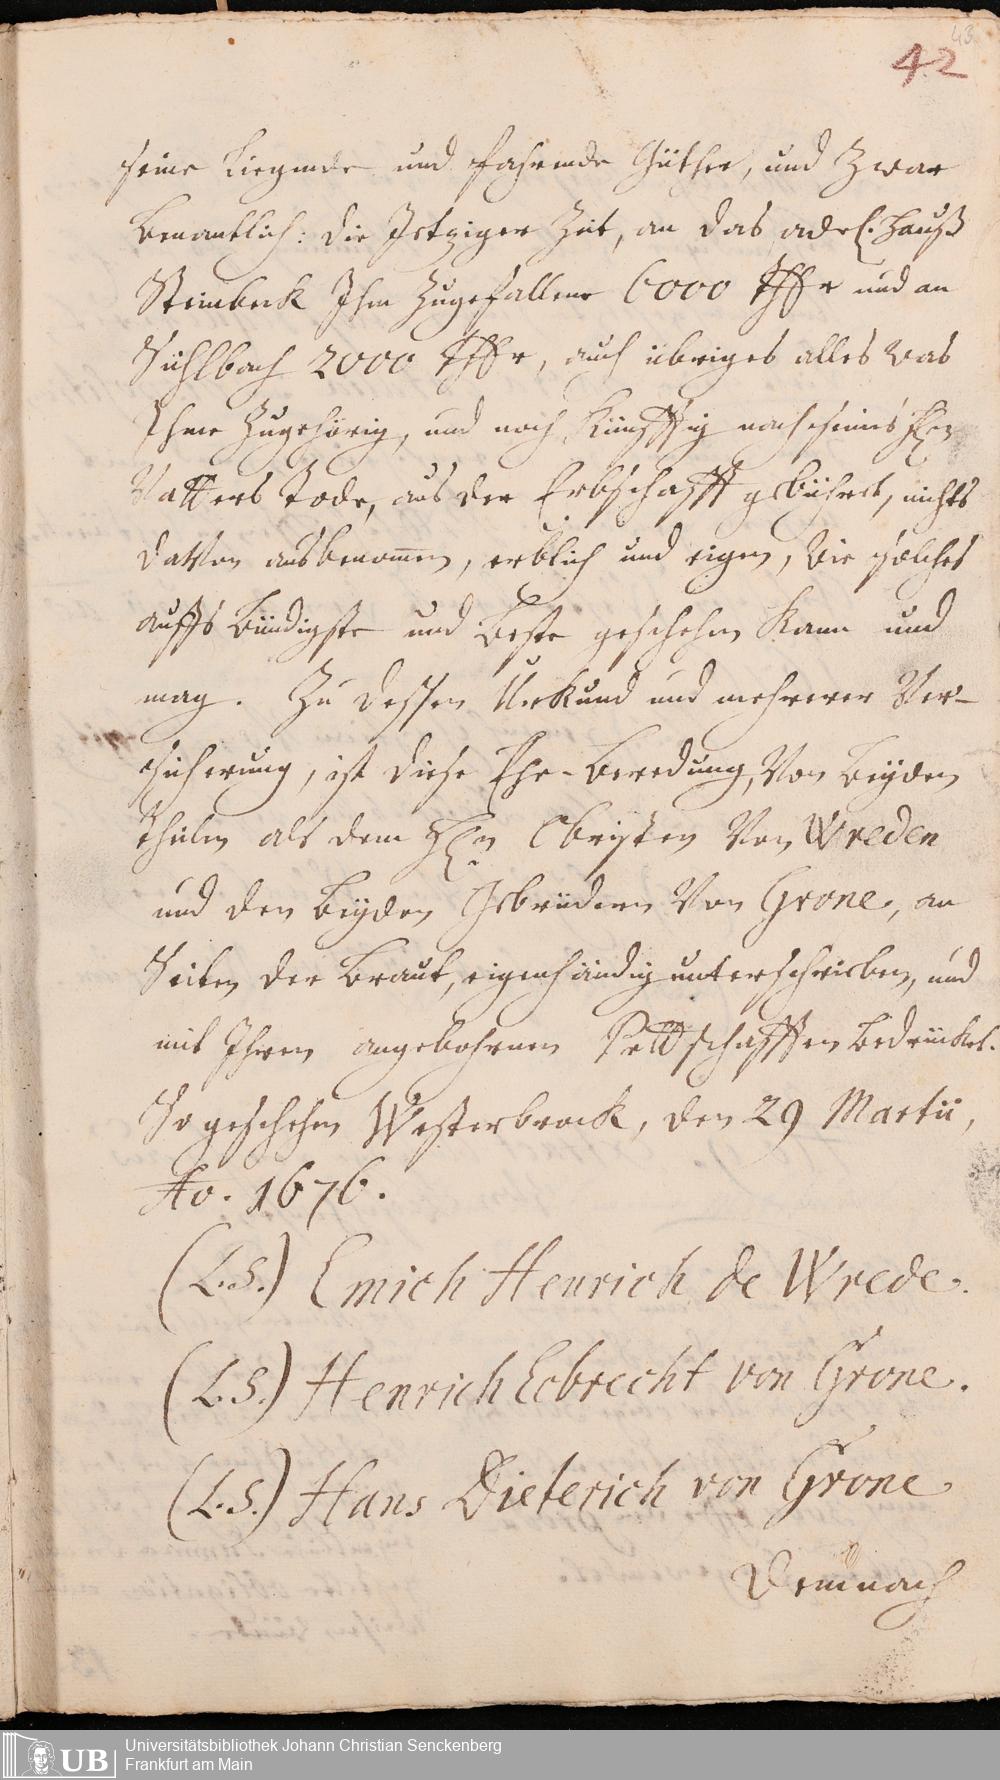 43
42
seine liegende und fahrende Güther, und zwar
benantlich: die Jetziger Zeit, an das adel. Hauß
Steinbeck Ihm zugefallene 6000 Thlr und an
Sühlbach 2000 Thlr, auch übriges alles was
Ihme zugehörig, und noch künfftig nach seines Hen
Vatters Tode, aus der Erbschafft gebühret, nichts
davon ausbenom̄en, erblich und eigen, wie solches
auffs bündigste und beste geschehen kann und
mag. Zu dessen Urkund und mehrerer Ver-
sicherung, ist diese Ehe-Beredung, von beyden
Theilen als dem Hen Obristen von Wreden
und den beyden Gebrüdern von Grone, an
Seiten der Braut, eigenhändig unterschrieben, und
mit Ihren angebohrnen Pettschafften bedrücket.
So geschehen Westerbrack, den 29 Martii,
Ao. 1676.
(L.S.) Emich Henrich de Wrede.
(L.S.) Henrich Ecbrecht von Grone.
(L.S.) Hans Dieterich von Grone
Demnach
UB
Universitätsbibliothek Johann Christian Senckenberg
Frankfurt am Main